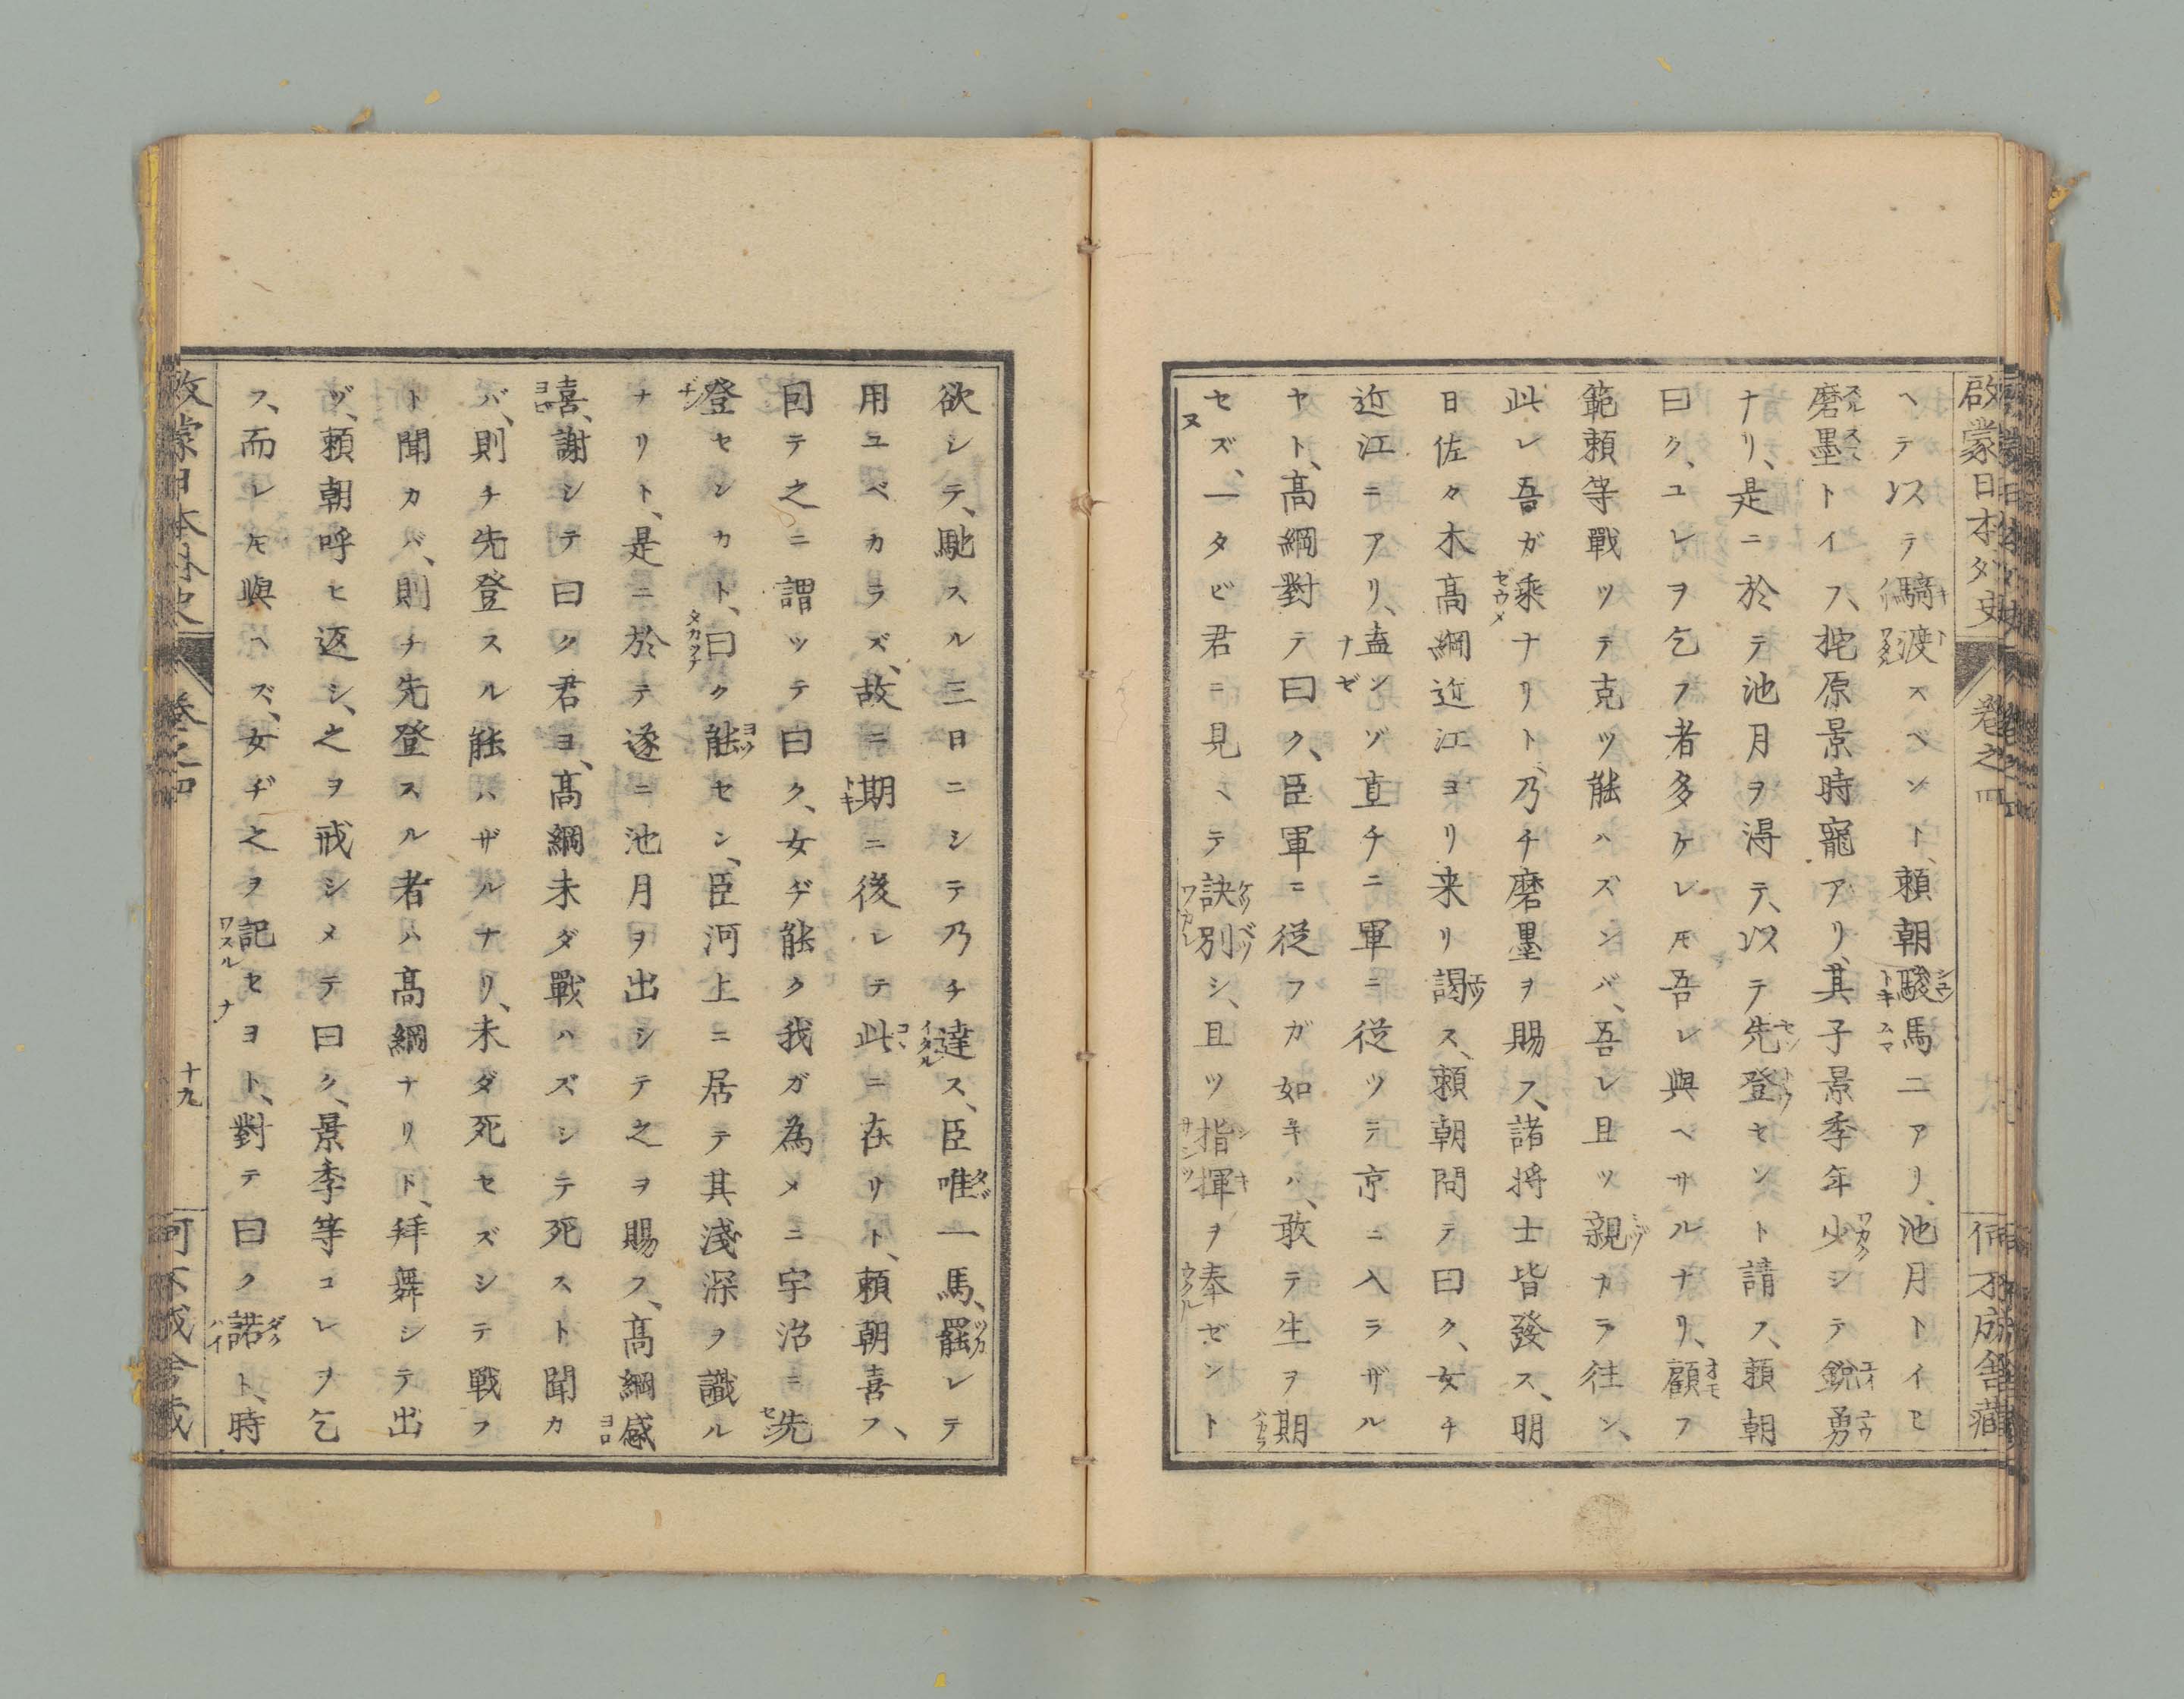 啓蒙日本外史
卷之四
ヘテ以テ騎渡スベシト、頼朝駿馬二アリ、池月トイヒ
磨墨トイフ、梶原景時寵アリ、其子景季年少シテ鋭勇
ナリ、是ニ於テ池月ヲ得テ、以テ先登セント請フ、頼朝
曰ク、コレヲ乞フ者多ケレ𪜈吾レ與ヘサルナリ、顧フ
範頼等戰ツテ克ツ能ハズンバ、吾レ且ツ親カラ往ン、
此レ吾ガ乘ナリト、乃チ磨墨ヲ賜ス、諸将士皆發ス、明
日佐々木髙綱近江ヨリ来リ謁ス、頼朝問テ曰ク、女チ
近江ニアリ、盍ンゾ直チニ軍ニ従ツテ京ニ入ラザル
ヤト、髙綱對テ曰ク、臣軍ニ従フガ如キハ、敢テ生ヲ期
セズ、一タビ君ニ見ヘテ訣別シ、且ツ指揮ヲ奉ゼント
欲シテ、馳スル三日ニシテ乃チ達ス、臣唯一馬、罷レテ
用ユベカラズ、故ニ期ニ後レテ此ニ在リト、頼朝喜フ、
回テ之ニ謂ツテ曰ク、女ヂ能ク我ガ為メニ宇治ニ先
登センカト、曰ク能セン、臣河上ニ居テ其淺深ヲ識ル
ナリト、是ニ於テ遂ニ池月ヲ出シテ之ヲ賜フ、髙綱感
喜、謝シテ曰ク君ヨ、髙綱未ダ戰ハズシテ死スト聞カ
バ、則チ先登スル能ハザルナリ、未ダ死セズシテ戦フ
ト聞カバ、則チ先登スル者ハ髙綱ナリト、拜舞シテ出
ヅ、頼朝呼ヒ返シ、之ヲ戒シメテ曰ク、景季等コレヲ乞
フ、而レ𪜈與ヘズ、女ヂ之ヲ記セヨト、對テ曰ク諾ト、時
啓蒙日本外史
卷之四
十九